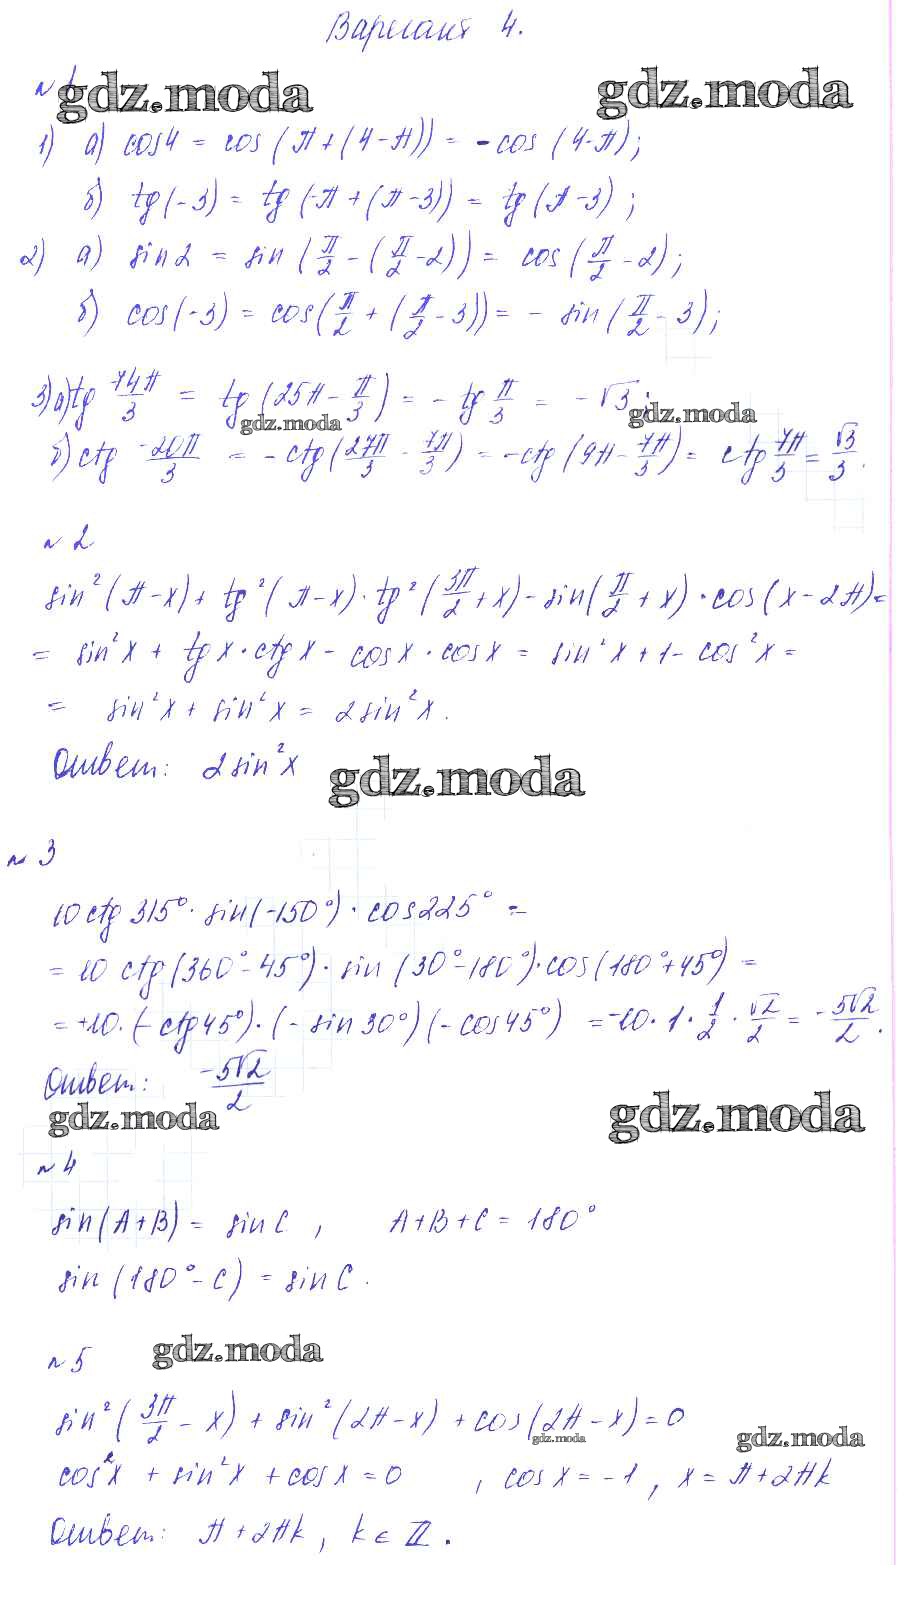 Вариант 4.
gdz.moda gdz.moda
№ 1
1) а) cos4 = cos (π + (4-π)) = -cos (4-π);
б) tg(-3) = tg (-π + (π-3)) = tg (π-3);
2) а) sin2 = sin (π/2 - (π/2 - 2)) = cos (π/2 - 2);
б) cos(-3) = cos(π/2 + (π/2 - 3)) = - sin (π/2 - 3);
3) а) tg 74π/3 = tg (25π - π/3) = - tg π/3 = - √3;
gdz.moda gdz.moda
б) ctg -20π/3 = -ctg (27π/3 - 7π/3) = -ctg (9π - 7π/3) = ctg 7π/3 = √3/3.
№ 2
sin²(π-x) + tg²(π-x) · tg²(3π/2 + x) - sin(π/2 + x) · cos(x-2π) =
= sin²x + tgx · ctgx - cosx · cosx = sin²x + 1 - cos²x =
= sin²x + sin²x = 2sin²x.
Ответ: 2sin²x
gdz.moda
№ 3
10ctg315° · sin(-150°) · cos225° =
= 10 ctg(360°-45°) · sin (30°-180°) · cos(180°+45°) =
= +10 · (-ctg45°) · (-sin30°)(-cos45°) = -10 · 1 · 1/2 · √2/2 = - 5√2/2.
Ответ: -5√2/2
gdz.moda gdz.moda
№ 4
sin(A+B) = sin C, A+B+C = 180°
sin(180°-C) = sin C.
№ 5
gdz.moda
sin²(3π/2 - x) + sin²(2π-x) + cos(2π-x) = 0
gdz.moda gdz.moda
cos²x + sin²x + cosx = 0, cos x = -1, x = π+2πk
Ответ: π+2πk, k ∈ Z.